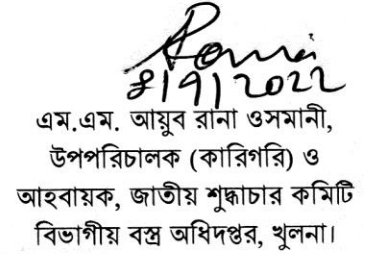 Rana
8/9/2022
এম.এম. আয়ুব রানা ওসমানী,
উপপরিচালক (কারিগরি) ও
আহবায়ক, জাতীয় শুদ্ধাচার কমিটি
বিভাগীয় বস্ত্র অধিদপ্তর, খুলনা।